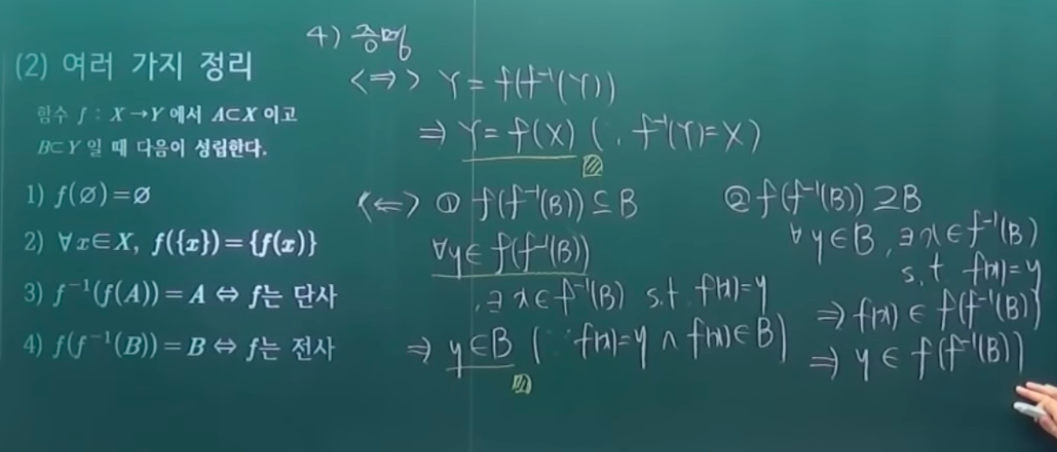 (2) 여러 가지 정리
함수 f : X→Y 에서 A⊂X 이고
B⊂Y 일 때 다음이 성립한다.
1) f(∅)=∅
2) ∀x∈X, f({x})={f(x)}
3) f⁻¹(f(A))=A ⇔ f는 단사
4) f(f⁻¹(B))=B ⇔ f는 전사
4) 증명
<⇒> Y=f(f⁻¹(Y))
⇒ Y=f(X) (∵ f⁻¹(Y)=X)
(⇐) ① f(f⁻¹(B))⊆B
∀y∈f(f⁻¹(B))
, ∃x∈f⁻¹(B) s.t f(x)=y
⇒ y∈B (∵ f(x)=y ∧ f(x)∈B)
② f(f⁻¹(B))⊇B
∀y∈B, ∃x∈f⁻¹(B)
s.t f(x)=y
⇒ f(x)∈f(f⁻¹(B))
⇒ y∈f(f⁻¹(B))